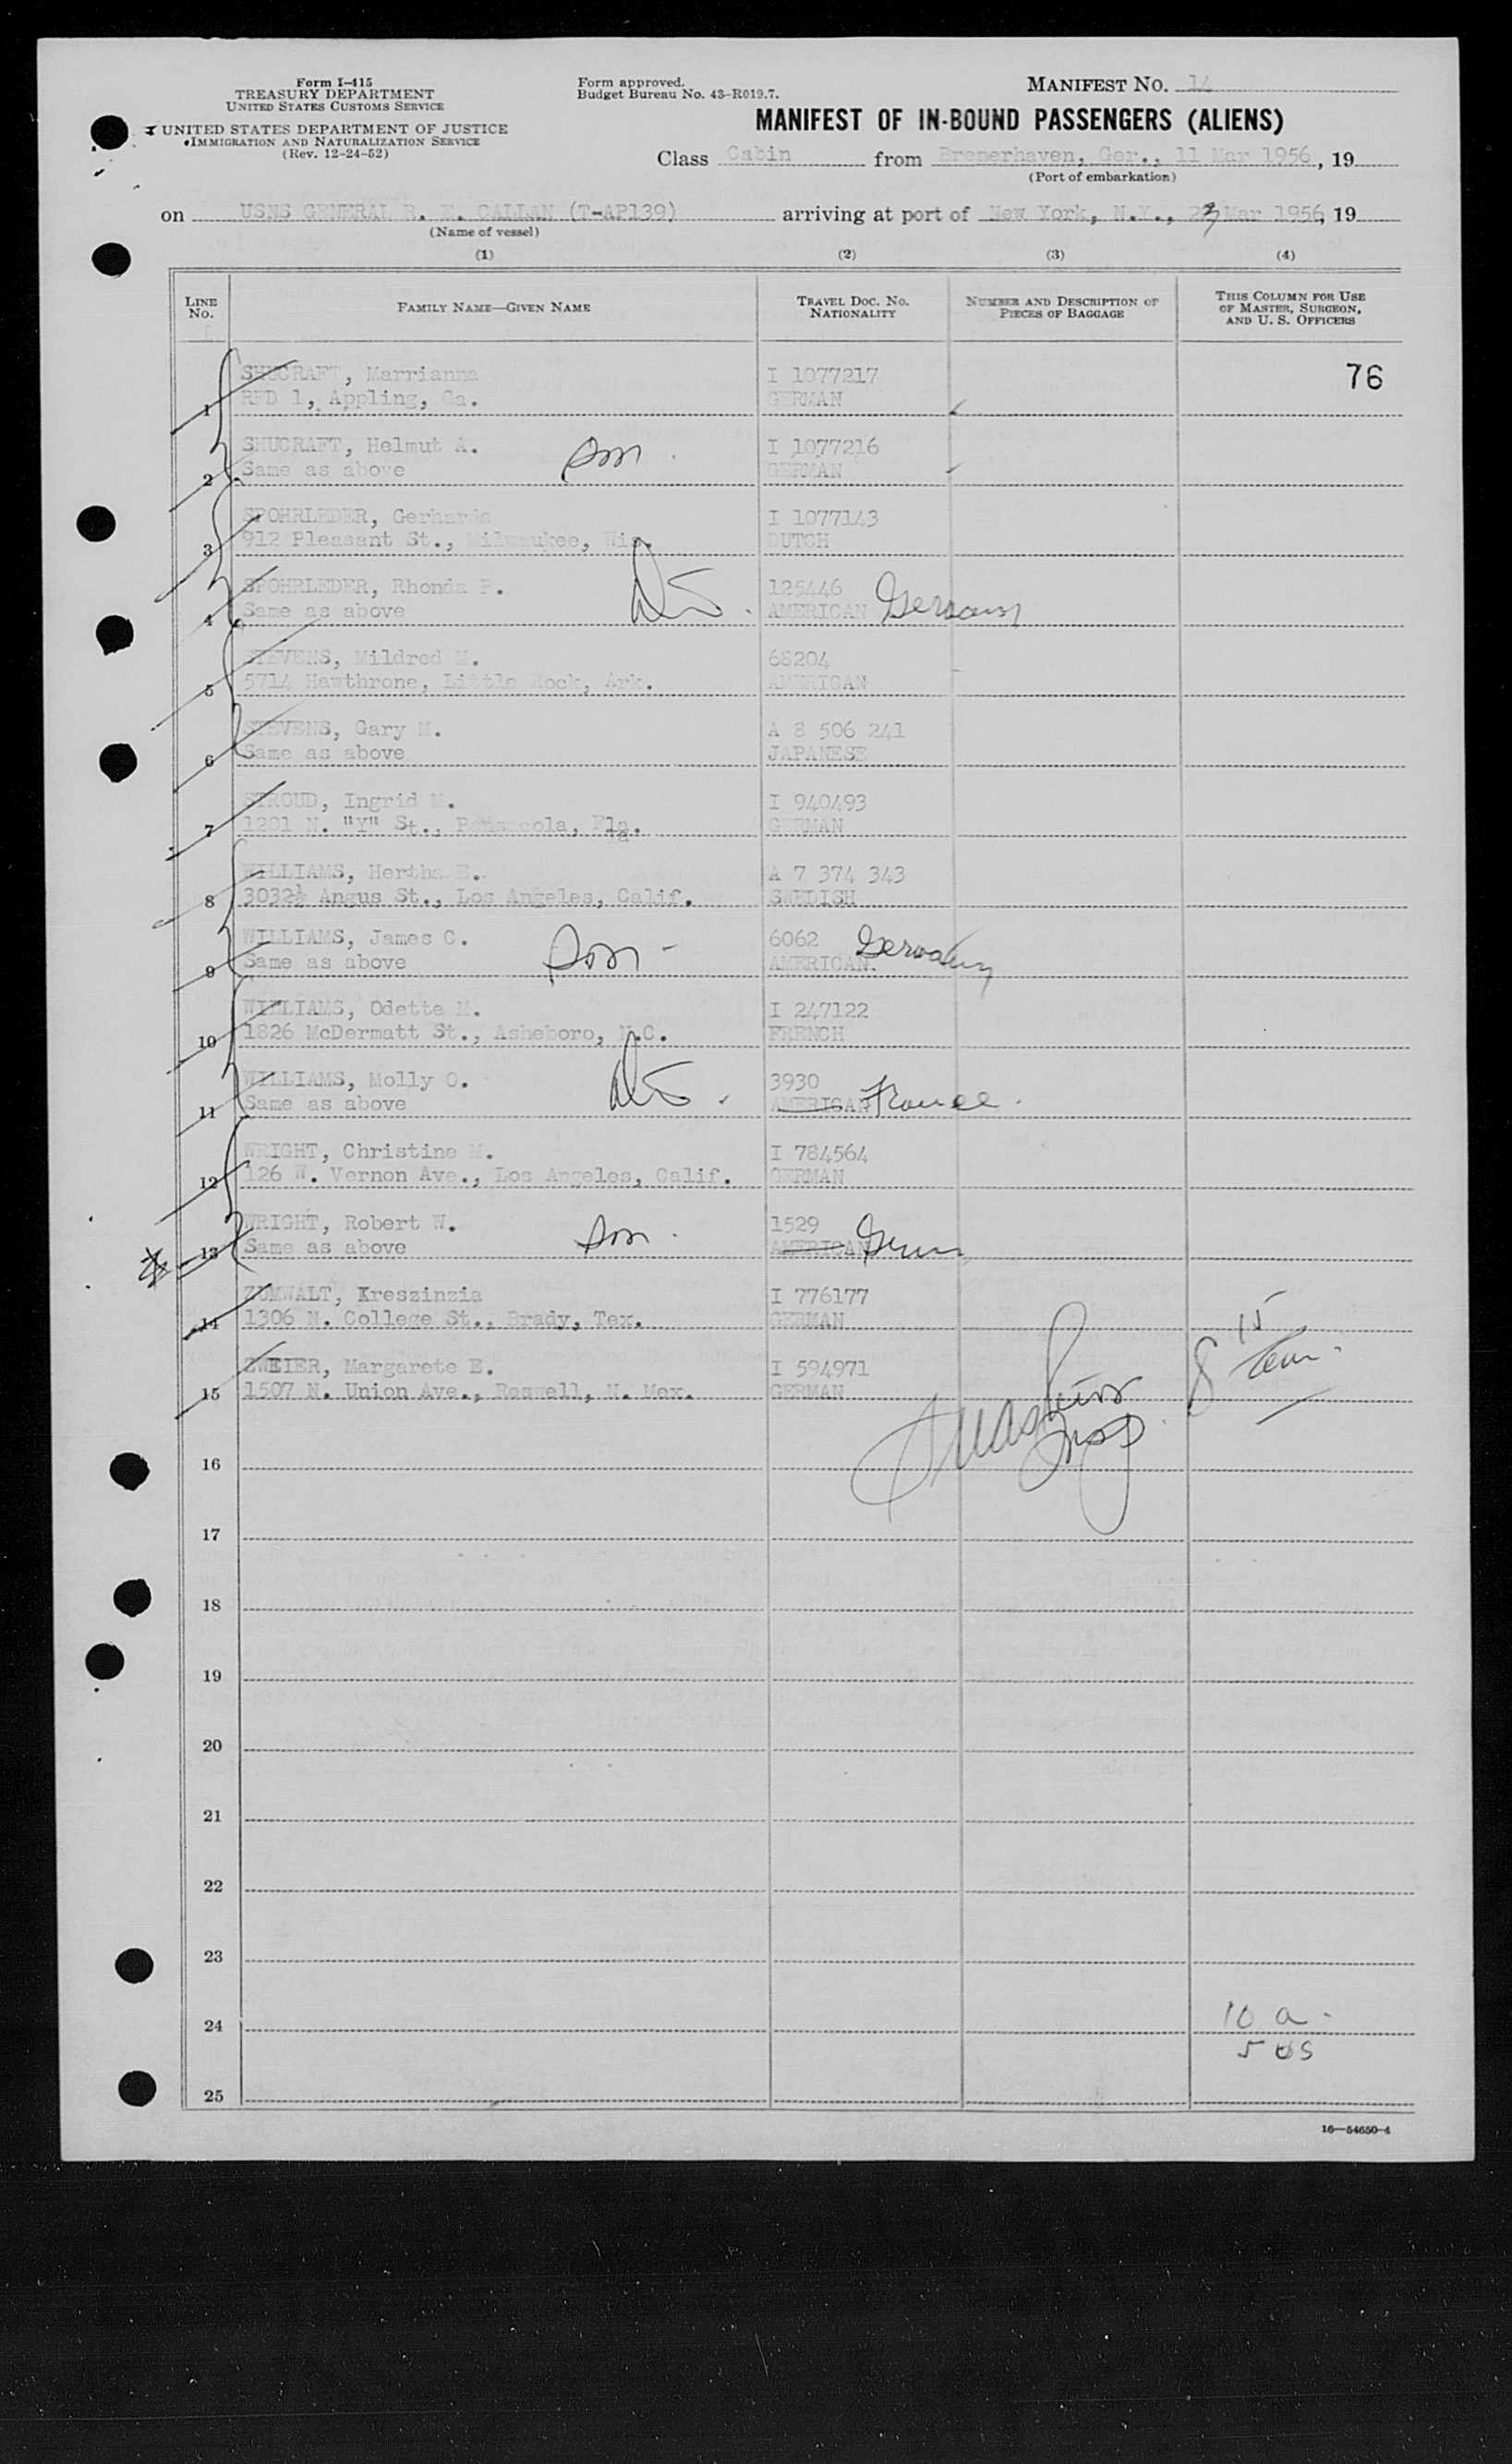 Form I-415
TREASURY DEPARTMENT
UNITED STATES CUSTOMS SERVICE
UNITED STATES DEPARTMENT OF JUSTICE
IMMIGRATION AND NATURALIZATION SERVICE
(Rev. 12-24-52)
Form approved.
Budget Bureau No. 43-R019.7.
MANIFEST NO. 14
MANIFEST OF IN-BOUND PASSENGERS (ALIENS)
Class Cabin from Bremerhaven, Ger., 11 Mar 1956, 19
(Port of embarkation)
on USNS GENERAL R. E. CALLAN (T-AP139) arriving at port of New York, N.Y., 23 Mar 1956, 19
(Name of vessel)
(1) (2) (3) (4)
LINE NO.
FAMILY NAME—GIVEN NAME
TRAVEL DOC. NO. NATIONALITY
NUMBER AND DESCRIPTION OF PIECES OF BAGGAGE
THIS COLUMN FOR USE OF MASTER, SURGEON, AND U. S. OFFICERS
SHUCRAFT, Marrianna I 1077217 76
1 RFD 1, Appling, Ga. GERMAN
SHUCRAFT, Helmut A. son. I 1077216
2 Same as above GERMAN
SPOHRLEDER, Gerharda I 1077143
3 912 Pleasant St., Milwaukee, Wis. DUTCH
SPOHRLEDER, Rhonda P. 125446
4 Same as above AMERICAN Germany
STEVENS, Mildred M. 68204
5 5714 Hawthrone, Little Rock, Ark. AMERICAN
STEVENS, Gary M. A 8 506 241
6 Same as above JAPANESE
STROUD, Ingrid M. I 940493
7 1201 N. "Y" St., Pensacola, Fla. GERMAN
WILLIAMS, Hertha E. A 7 374 343
8 3032½ Angus St., Los Angeles, Calif. SWEDISH
WILLIAMS, James C. son - 6062 Germany
9 Same as above AMERICAN.
WILLIAMS, Odette M. I 247122
10 1826 McDermatt St., Asheboro, N.C. FRENCH
WILLIAMS, Molly O. 3930
11 Same as above AMERICAN France.
WRIGHT, Christine M. I 784564
12 126 W. Vernon Ave., Los Angeles, Calif. GERMAN
WRIGHT, Robert W. son. 1529
13 Same as above AMERICAN Germ
ZUMWALT, Kreszinzia I 776177
14 1306 N. College St., Brady, Tex. GERMAN
15
ZWEIER, Margarete E. I 594971 8
15 1507 N. Union Ave., Roswell, N. Mex. GERMAN
16
17
18
19
20
21
22
23
24 10 a.
5 US
25
16—54650-4